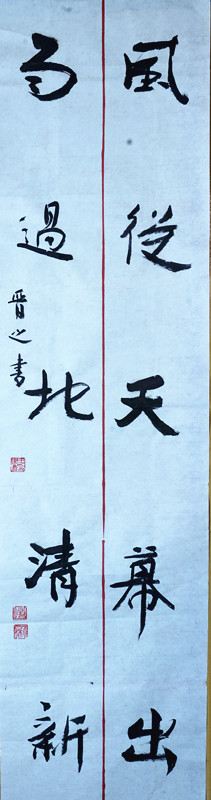 風從天幕出
雨過地清新
晉之書